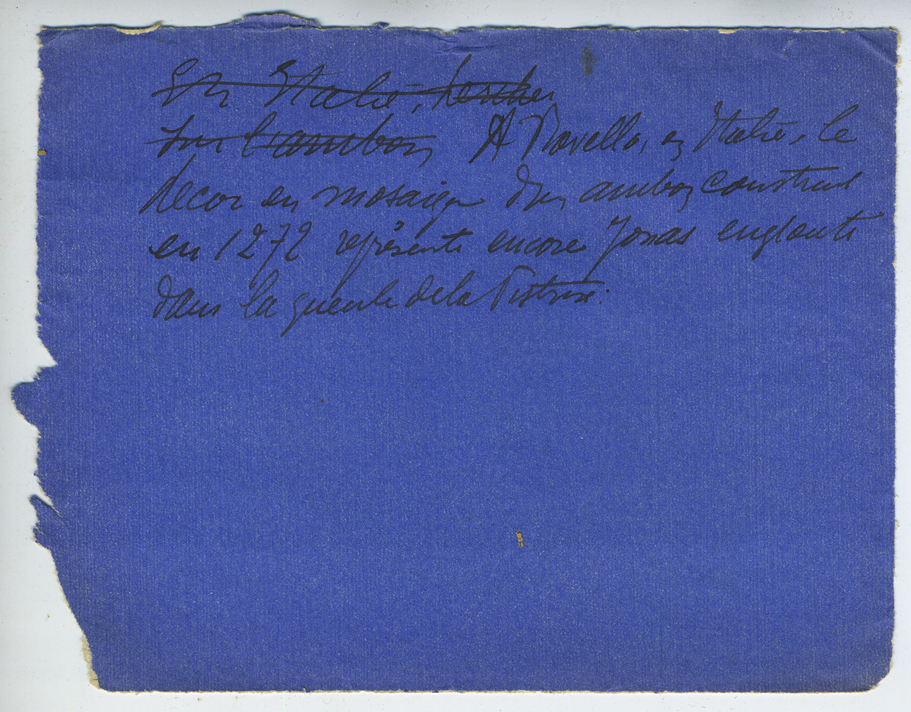 En Italie,
sur l'ambon A Ravello, en Italie, le
décor en mosaïque d'un ambon construit
en 1272 représente encore Jonas englouti
dans la gueule de la Pistrix.